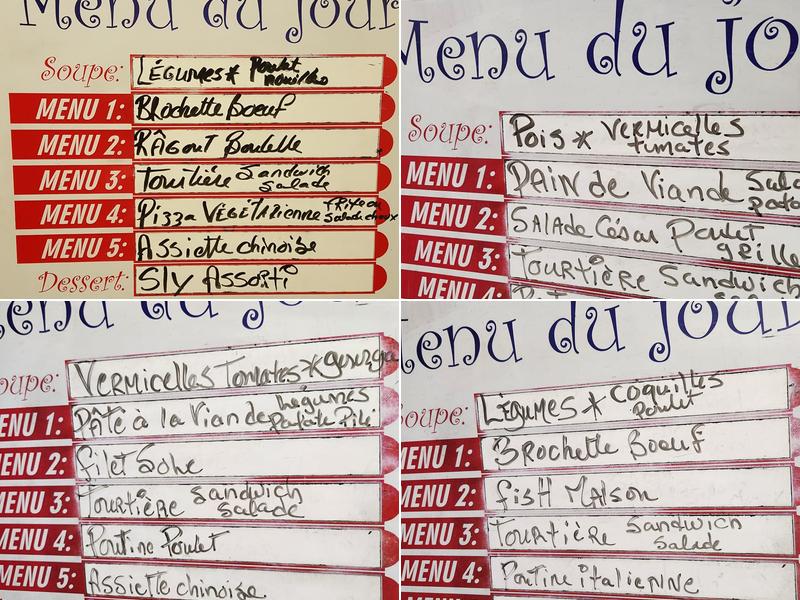 Menu du jour
Soupe: LÉGUMES* Poulet nouilles
MENU 1: BRochette Boeuf
MENU 2: RÂGOUT Boulette
MENU 3: Tourtière Sandwich salade
MENU 4: Pizza VÉGÉTARIENNE frite ou Salade choux
MENU 5: Assiette chinoise
Dessert: SLY Assorti
Menu du jo
Soupe: Pois * VERMicelles tumates
MENU 1: PAIN de Viande Sala pata
MENU 2: SALADE César Poulet grille
MENU 3: TOURTIÈRE Sandwich
MENU 4:
enu du jour
oupe: VERMicelles Tomates*
ENU 1: PÂTÉ à la Viande Légumes Patate Pilé
MENU 2: filet Sole
MENU 3: TourtièRe Sandwich Salade
MENU 4: Poutine Poulet
MENU 5: Assiette chinoise
enu du jour
oupe: LÉGUMES * COQUILLES Poulet
MENU 1: BRochette Boeuf
MENU 2: fisH MAISON
MENU 3: TourtièRe Sandwich Salade
MENU 4: Poutine italieNNe